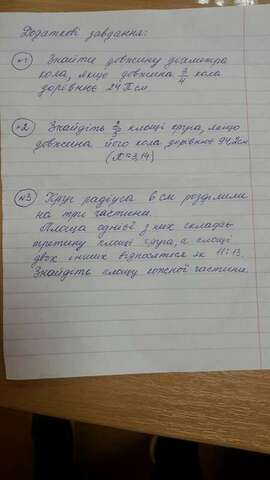 Додаткові завдання:
№1 Знайти довжину діаметра
кола, якщо довжина 3/4 кола
дорівнює 24π см
№2 Знайдіть 2/3 площі круга, якщо
довжина його кола дорівнює 94,2см
(π≈3,14)
№3 Круг радіуса 6 см розділили
на три частини.
Площа однієї з них складає
третину площі круга, а площі
двох інших відносяться як 11:13.
Знайдіть площу кожної частини.